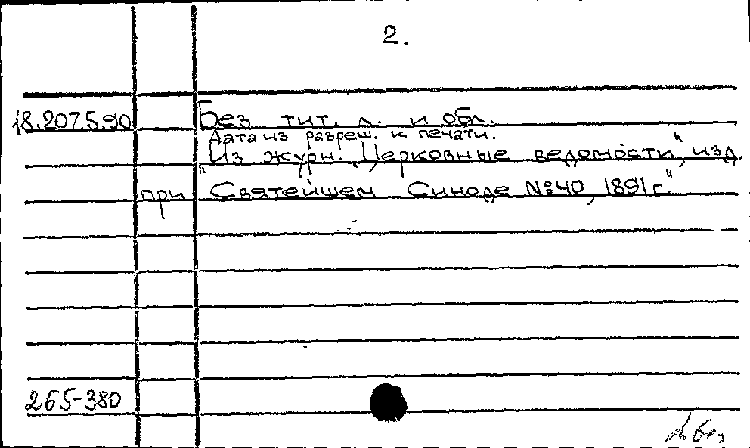 2.
18.207590 Без тит. л. и обл.
Дата из разреш. к печати.
"Из журн. "Церковные ведомости", изд.
при Святейшем Синоде №40, 1891г."
265-380